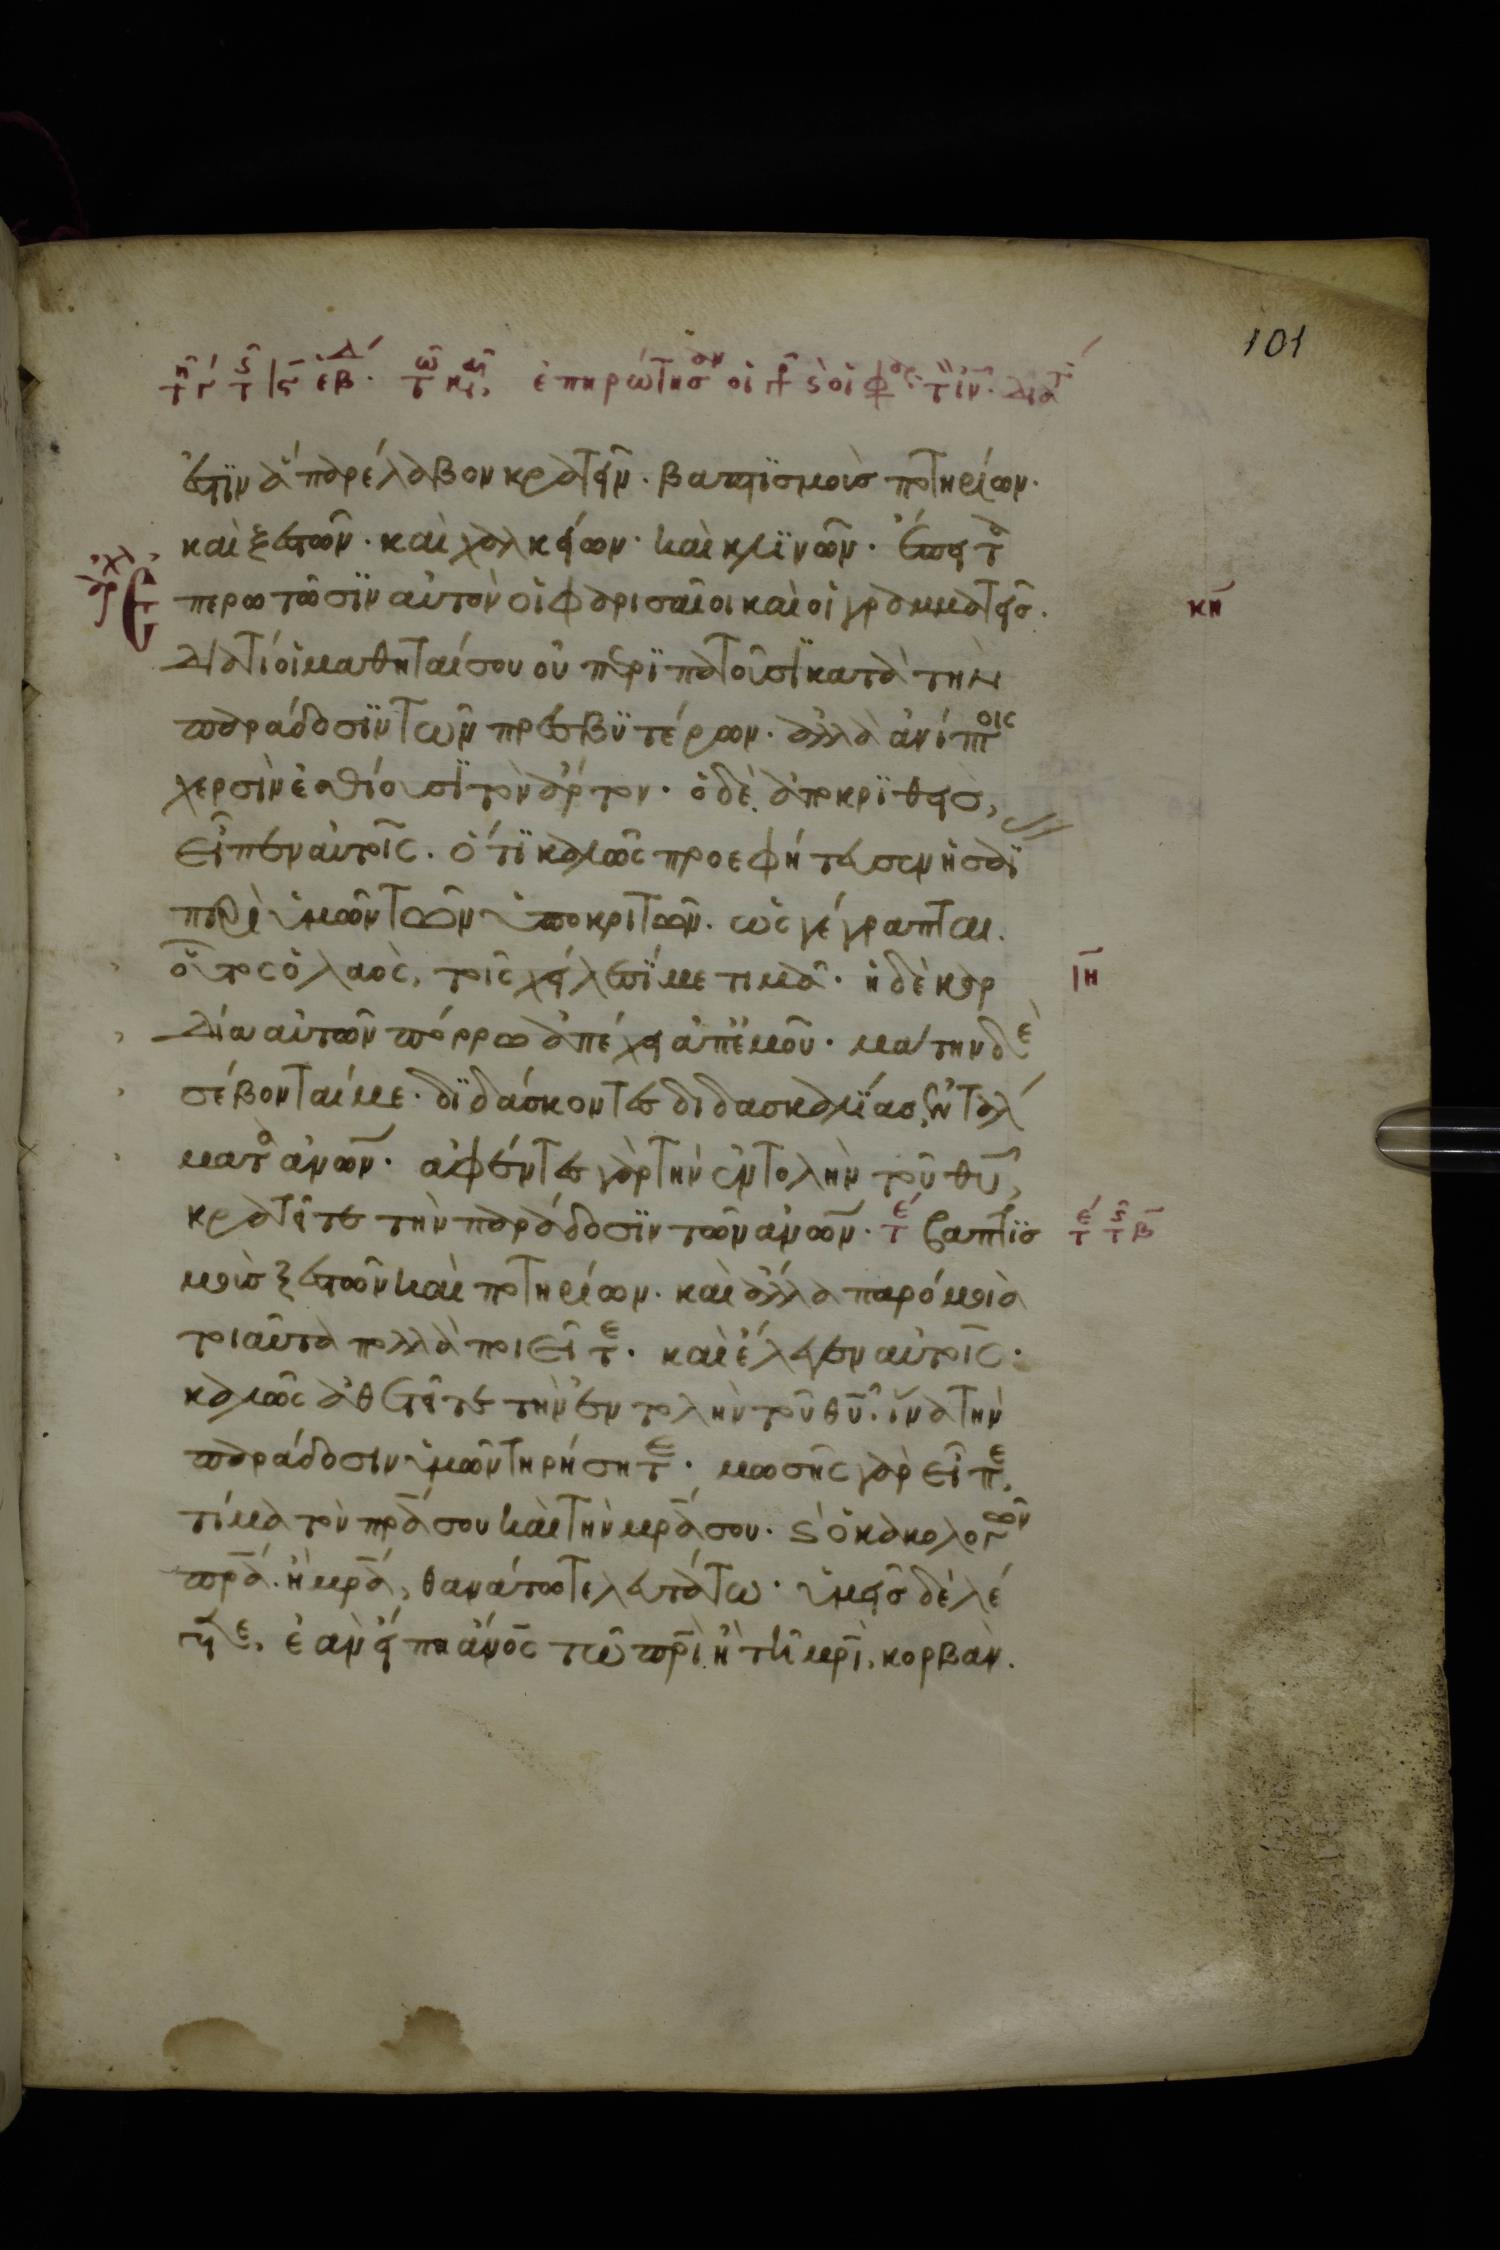 101
τῇ γ΄ τῆς ιϛ ἑβδ. τῷ κῷ, ἐπηρώτησαν οἱ γρ ϛ οἱ φαρ τὸν ιν. διατί
ἐστὶν ἃ παρέλαβον κρατεῖν. βαπτϊσμοὺσ ποτηρίων.
καὶ ξεστῶν. καὶ χαλκείων. καὶ κλϊνῶν. ἔπειτα
ἀρχ
Ἐπερωτῶσϊν αὐτὸν οἱ φαρισαῖοι καὶ οἱ γραμματεῖσ.
κη
διατί οἱ μαθηταί σου οὐ περϊπατοῦσϊ κατὰ τὴν
παράδοσϊν τῶν πρεσβϋτέρων. ἀλλὰ ἀνίπτοις
χερσὶν ἐσθίουσϊ τὸν ἄρτον. ὁ δὲ ἀποκρϊθεὶσ,
εἶπεν αὐτοῖς. ὅτϊ καλῶς προεφήτευσεν ἠσαΐ
περὶ ὑμῶν τῶν ὑποκριτῶν. ὡς γέγραπται.
οὗτος ὁ λαὸς, τοῖς χείλεσΐ με τιμᾶ. ἡ δὲ καρ
ιη
δία αὐτῶν πόρρω ἀπέχει ἀπ ἐμοῦ. μάτην δὲ
σέβονταί με. δϊδάσκοντες διδασκαλΐας, ἐντάλ
ματα ἀνων. ἀφέντες γὰρ τὴν ἐντολὴν τοῦ θυ,
κρατεῖτε τὴν παράδοσϊν τῶν ἀνων. τέ βαπτϊσ
τέ τῆς β
μοὺσ ξεστῶν καὶ ποτηρίων. καὶ ἄλλα παρόμοια
τοιαῦτα πολλὰ ποιεῖτε. καὶ ἔλεγεν αὐτοῖς.
καλῶς ἀθετεῖτε τὴν ἐντολὴν τοῦ θυ. ἵνα τὴν
παράδοσιν ὑμῶν τηρήσητε. μωσῆς γὰρ εἶπε.
τίμα τὸν πρά σου καὶ τὴν μρά σου. ϛ ὁ κακολογῶν
πρά. ἢ μρά, θανάτω τελευτάτω. ὑμεῖσ δὲ λέ
γετε. ἐὰν εἴπη ἀνος τῶ πρὶ ἢ τῆ μρὶ, κορβὰν.